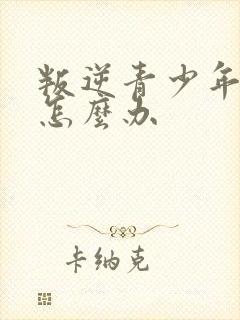 叛逆青少年
怎麼办
卡纳克